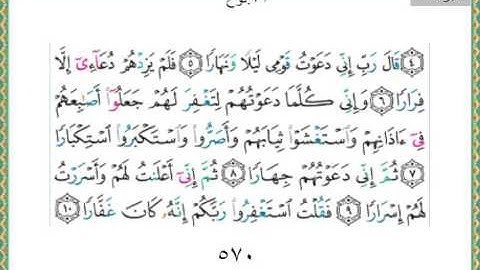 ﴿٤﴾ قَالَ رَبِّ إِنِّي دَعَوْتُ قَوْمِي لَيْلًا وَنَهَارًا ﴿٥﴾ فَلَمْ يَزِدْهُمْ دُعَآءِىٓ إِلَّا
فِرَارًا ﴿٦﴾ وَإِنِّي كُلَّمَا دَعَوْتُهُمْ لِتَغْفِرَ لَهُمْ جَعَلُوٓا۟ أَصَٰبِعَهُمْ
فِىٓ ءَاذَانِهِمْ وَٱسْتَغْشَوْا۟ ثِيَابَهُمْ وَأَصَرُّوا۟ وَٱسْتَكْبَرُوا۟ ٱسْتِكْبَارًا
﴿٧﴾ ثُمَّ إِنِّي دَعَوْتُهُمْ جِهَارًا ﴿٨﴾ ثُمَّ إِنِّىٓ أَعْلَنتُ لَهُمْ وَأَسْرَرْتُ
لَهُمْ إِسْرَارًا ﴿٩﴾ فَقُلْتُ ٱسْتَغْفِرُوا۟ رَبَّكُمْ إِنَّهُۥ كَانَ غَفَّارًا ﴿١٠﴾
٥٧٠